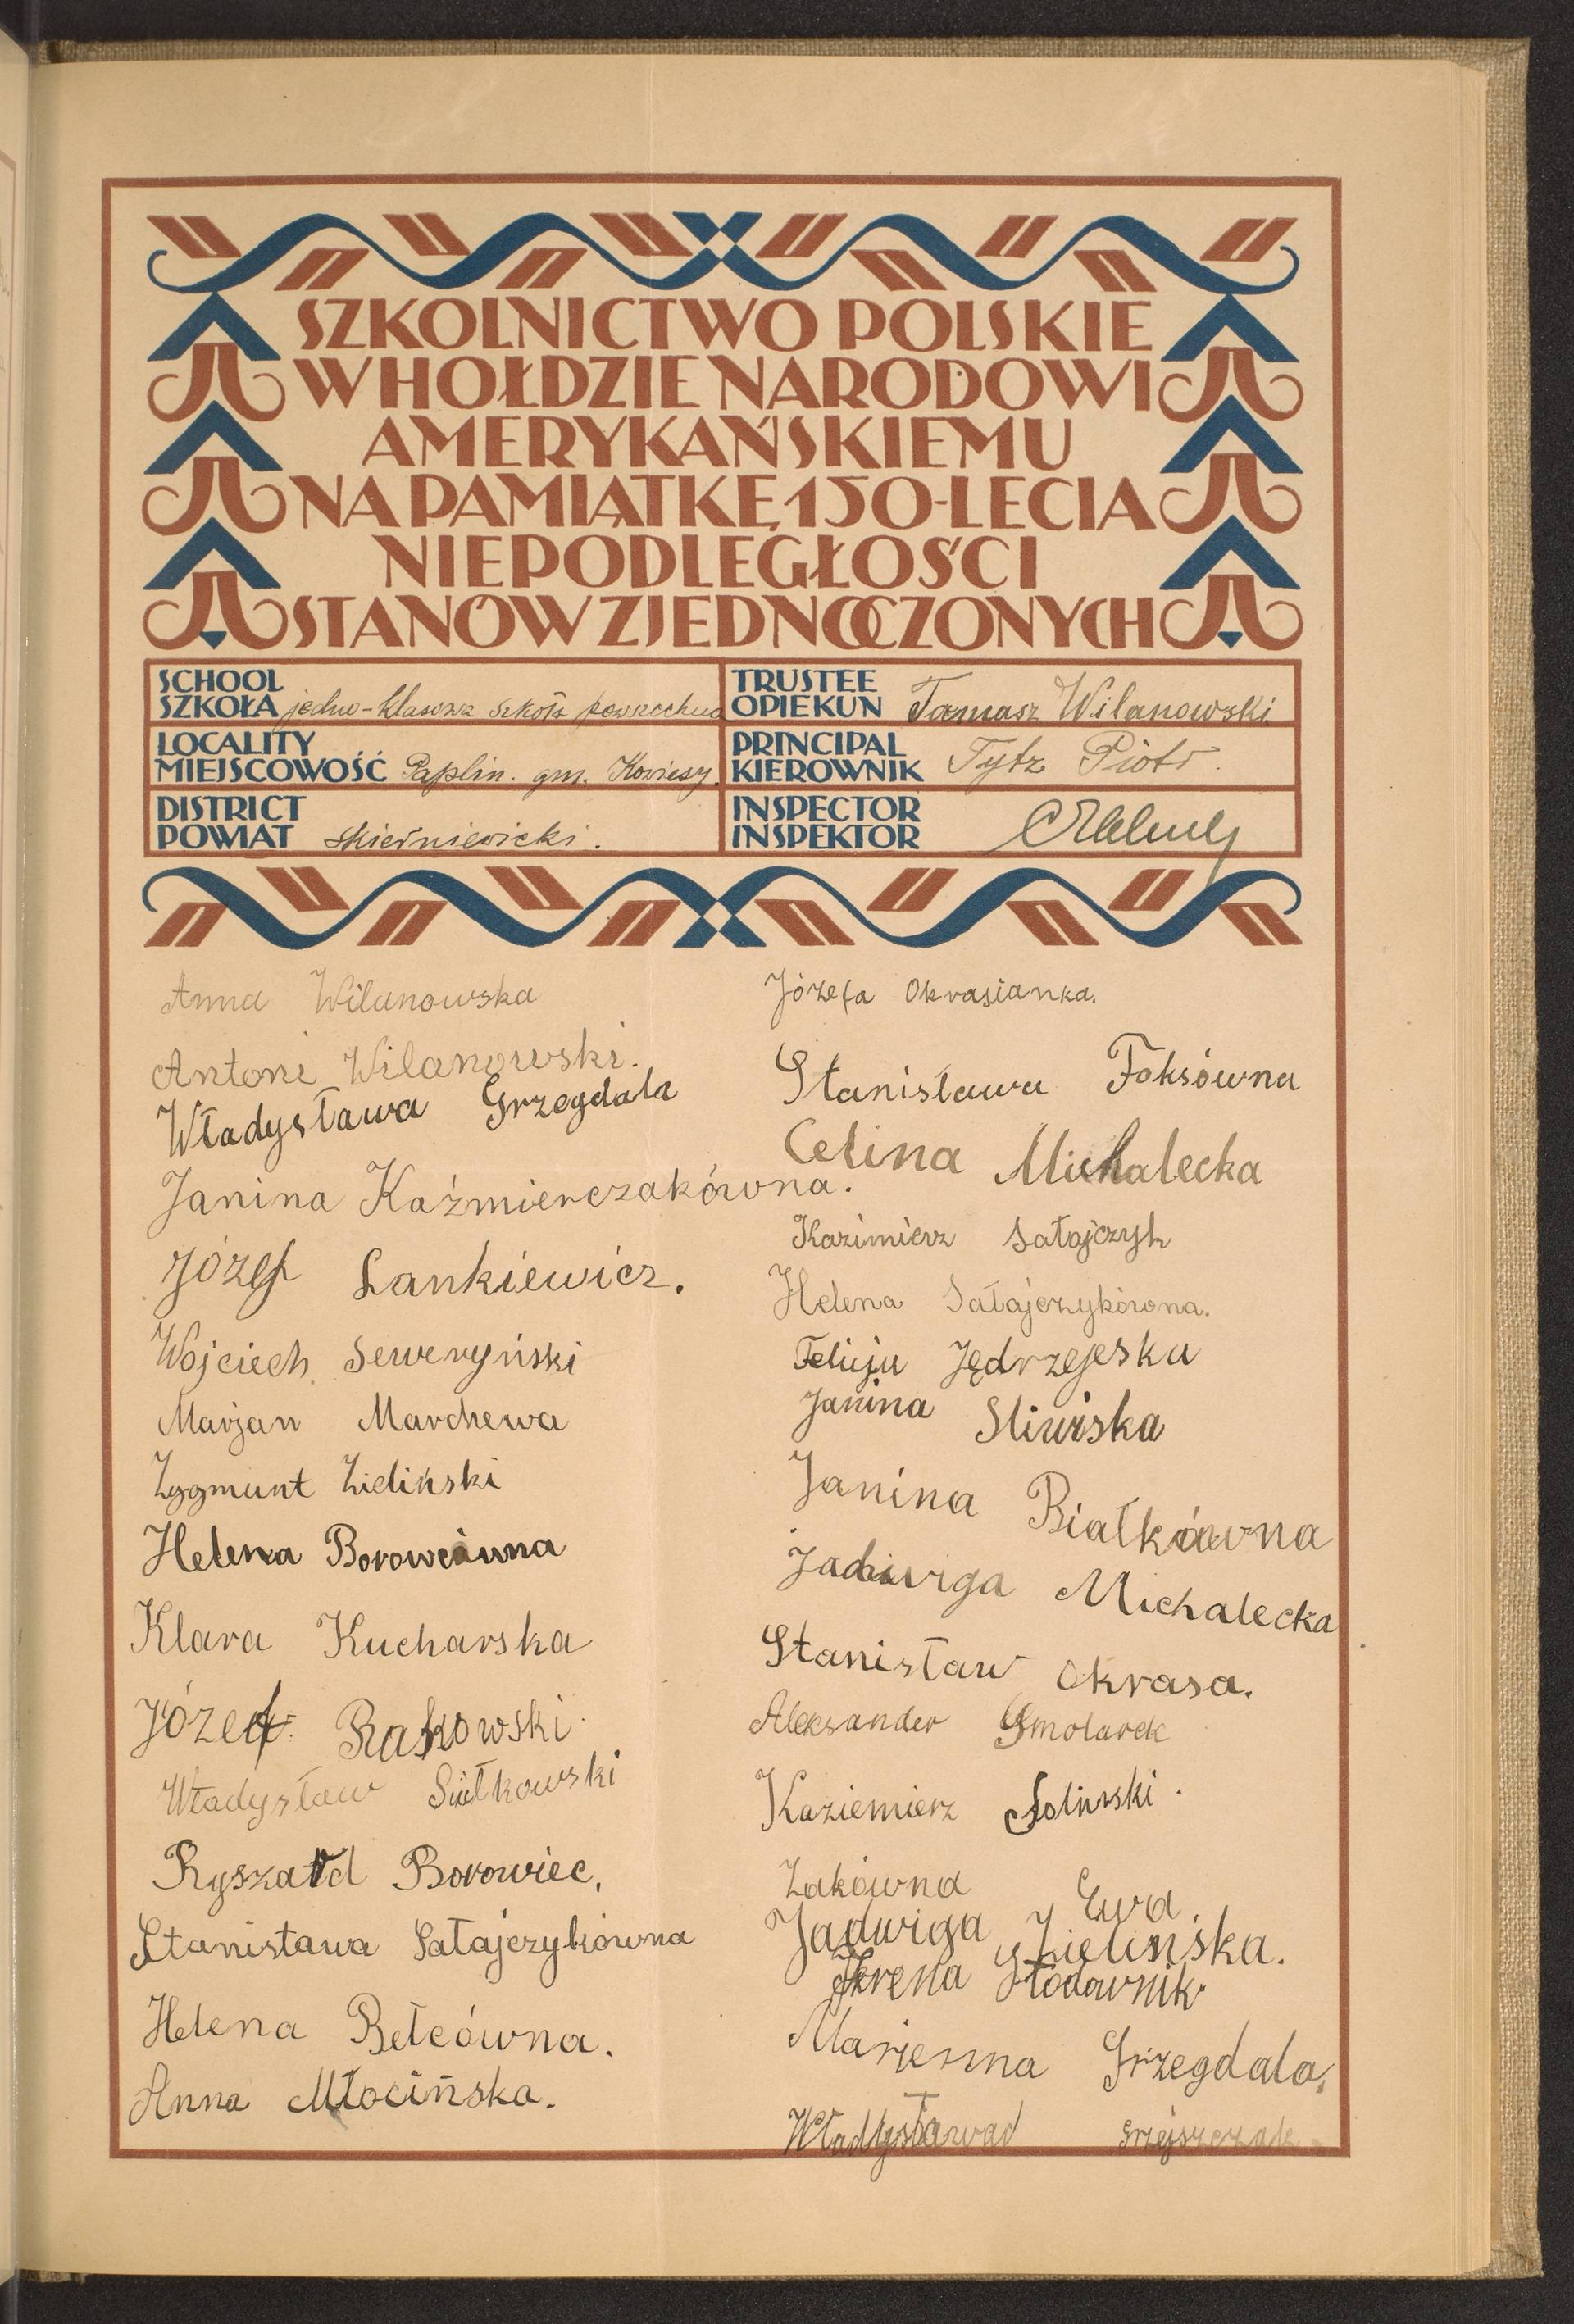 SZKOLNICTWO POLSKIE
W HOŁDZIE NARODOWI
AMERYKAŃSKIEMU
NA PAMIĄTKĘ 150-LECIA
NIEPODLEGŁOŚCI
STANÓW ZJEDNOCZONYCH
SCHOOL
SZKOŁA jedno-klasowa szkoła powszechna
LOCALITY
MIEJSCOWOŚĆ Paplin. gm. Kowiesy.
DISTRICT
POWIAT skierniewicki.
TRUSTEE
OPIEKUN Tomasz Wilanowski
PRINCIPAL
KIEROWNIK Tytz Piotr.
INSPECTOR
INSPEKTOR
Anna Wilanowska
Antoni Wilanowski.
Władysława Grzegdala
Janina Kaźmierczakówna.
Józef Lankiewicz.
Wojciech Seweryński
Marjan Marchewa
Zygmunt Zieliński
Helena
Klara Kucharska
Józef Rakowski
Władysław Sułkowski
Ryszard Borowiec,
Stanisława Sałajczykówna
Helena Bełcówna.
Anna Młocińska.
Józefa Okrasianka.
Stanisława Foksówna
Celina Michalecka
Kazimierz Sałajczyk
Helena Sałajczykówna.
Felicja Jędrzejeska
Janina Sliwiska
Janina Białkówna
Jadwiga Michalecka
Stanisław Okrasa.
Aleksander Smolarek
Kaziemierz
Żakówna Ewa.
Jadwiga Zielińska.
Irena Słodownik
Marjenna Grzegdala.